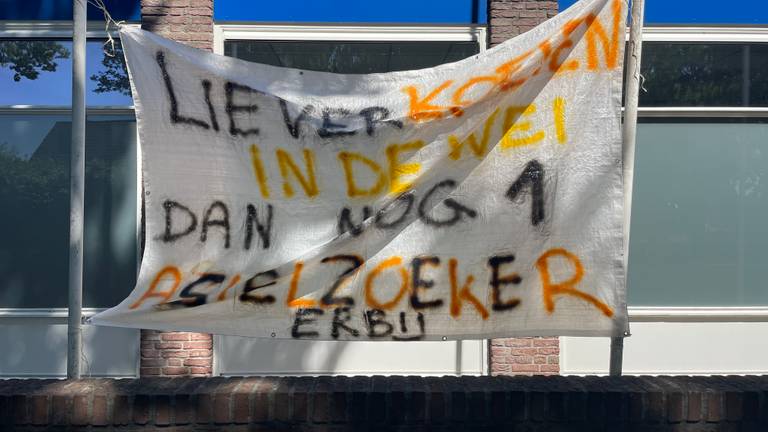 LIEVER KOEIEN
IN DE WEI
DAN NOG 1
ASIELZOEKER
ERBIJ